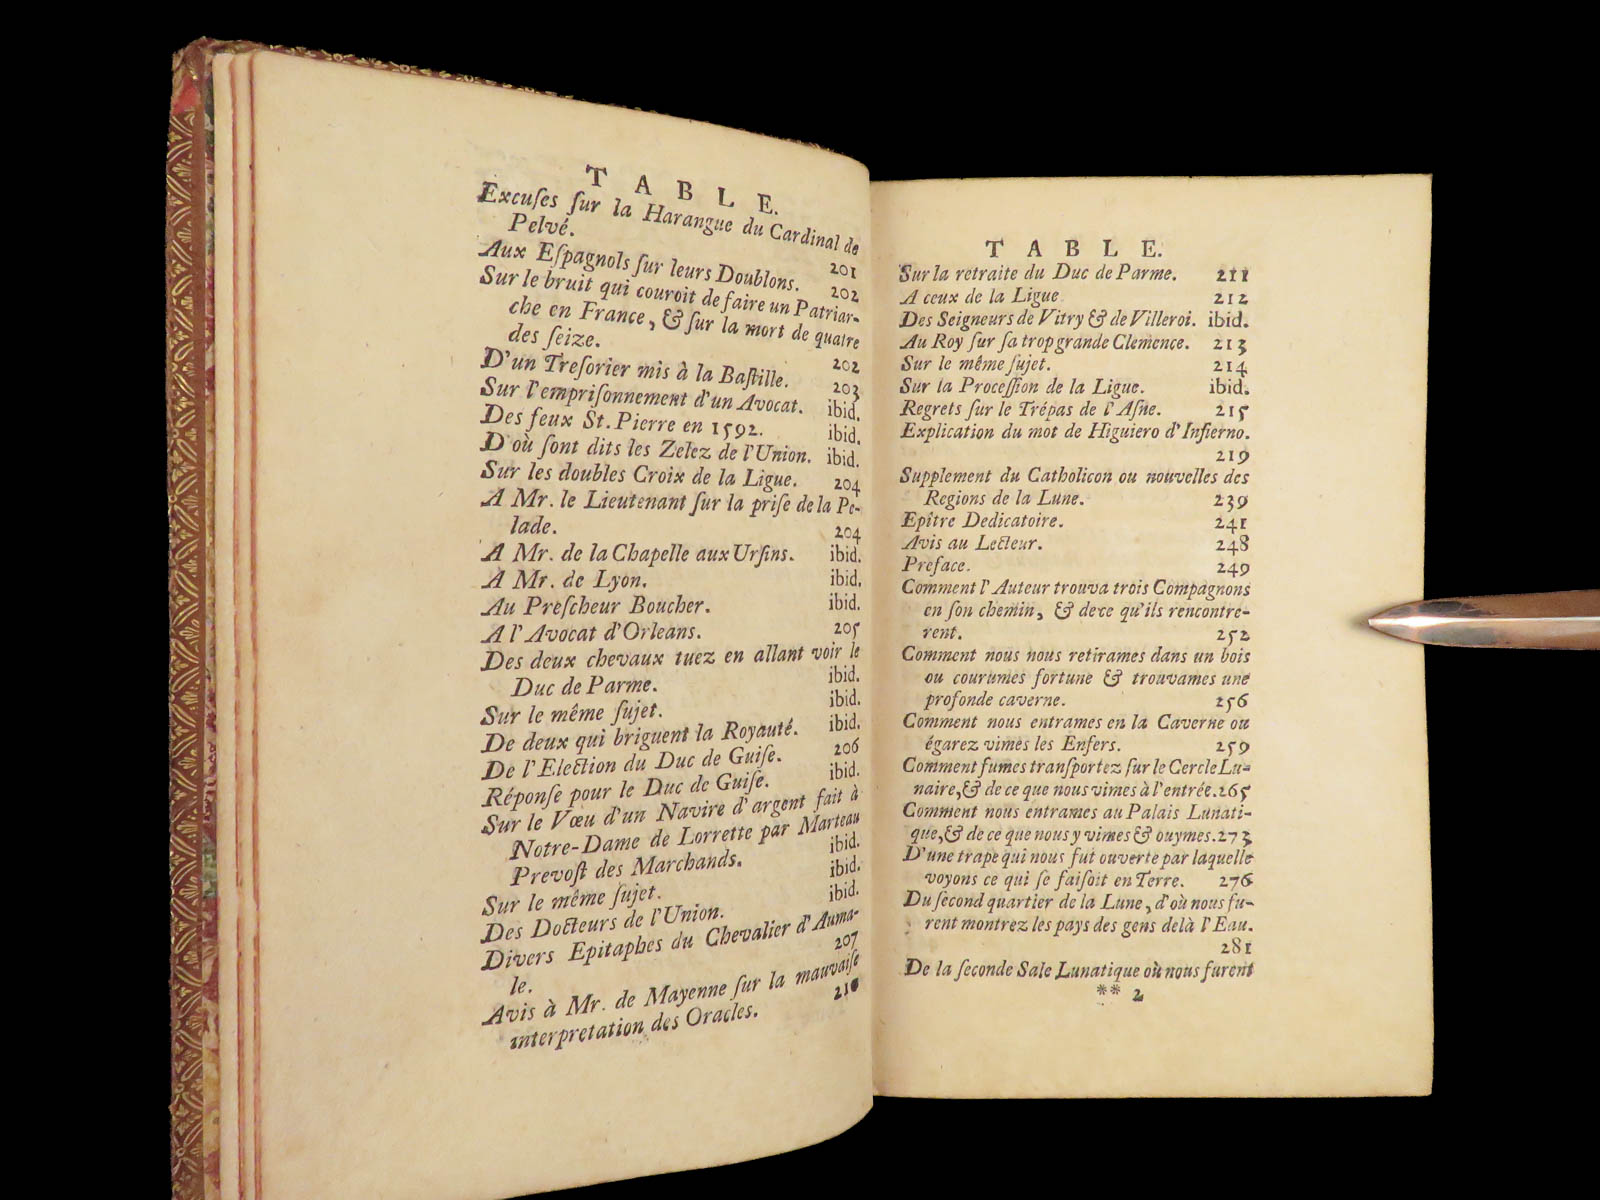 TABLE.
Excuſes ſur la Harangue du Cardinal de
Pelvé. 201
Aux Eſpagnols ſur leurs Doublons. 202
Sur le bruit qui couroit de faire un Patriar-
che en France, & ſur la mort de quatre
des ſeize. 202
D'un Treſorier mis à la Baſtille. 203
Sur l'empriſonnement d'un Avocat. ibid.
Des feux St. Pierre en 1592. ibid.
D'où ſont dits les Zelez de l'Union. ibid.
Sur les doubles Croix de la Ligue. 204
A Mr. le Lieutenant ſur la priſe de la Pe-
lade. 204
A Mr. de la Chapelle aux Urſins. ibid.
A Mr. de Lyon. ibid.
Au Preſcheur Boucher. ibid.
A l'Avocat d'Orleans. 205
Des deux chevaux tuez en allant voir le
Duc de Parme. ibid.
Sur le même ſujet. ibid.
De deux qui briguent la Royauté. ibid.
De l'Election du Duc de Guiſe. 206
Réponſe pour le Duc de Guiſe. ibid.
Sur le Vœu d'un Navire d'argent fait à
Notre-Dame de Lorrette par Marteau
Prevoſt des Marchands. ibid.
Sur le même ſujet. ibid.
Des Docteurs de l'Union. ibid.
Divers Epitaphes du Chevalier d'Auma-
le. 207
Avis à Mr. de Mayenne ſur la mauvaiſe
interpretation des Oracles. 210
TABLE.
Sur la retraite du Duc de Parme. 211
A ceux de la Ligue 212
Des Seigneurs de Vitry & de Villeroi. ibid.
Au Roy ſur ſa trop grande Clemence. 213
Sur le même ſujet. 214
Sur la Proceſſion de la Ligue. ibid.
Regrets ſur le Trépas de l'Aſne. 215
Explication du mot de Higuiero d'Infierno.
219
Supplement du Catholicon ou nouvelles des
Regions de la Lune. 239
Epître Dedicatoire. 241
Avis au Lecteur. 248
Preface. 249
Comment l'Auteur trouva trois Compagnons
en ſon chemin, & de ce qu'ils rencontre-
rent. 252
Comment nous nous retirames dans un bois
ou courumes fortune & trouvames une
profonde caverne. 256
Comment nous entrames en la Caverne ou
égarez vimes les Enfers. 259
Comment fumes tranſportez ſur le Cercle Lu-
naire, & de ce que nous vimes à l'entrée. 265
Comment nous entrames au Palais Lunati-
que, & de ce que nous y vimes & ouymes. 273
D'une trape qui nous fut ouverte par laquelle
voyons ce qui ſe faiſoit en Terre. 276
Du ſecond quartier de la Lune, d'où nous fu-
rent montrez les pays des gens delà l'Eau.
281
De la ſeconde Sale Lunatique où nous furent
** 2